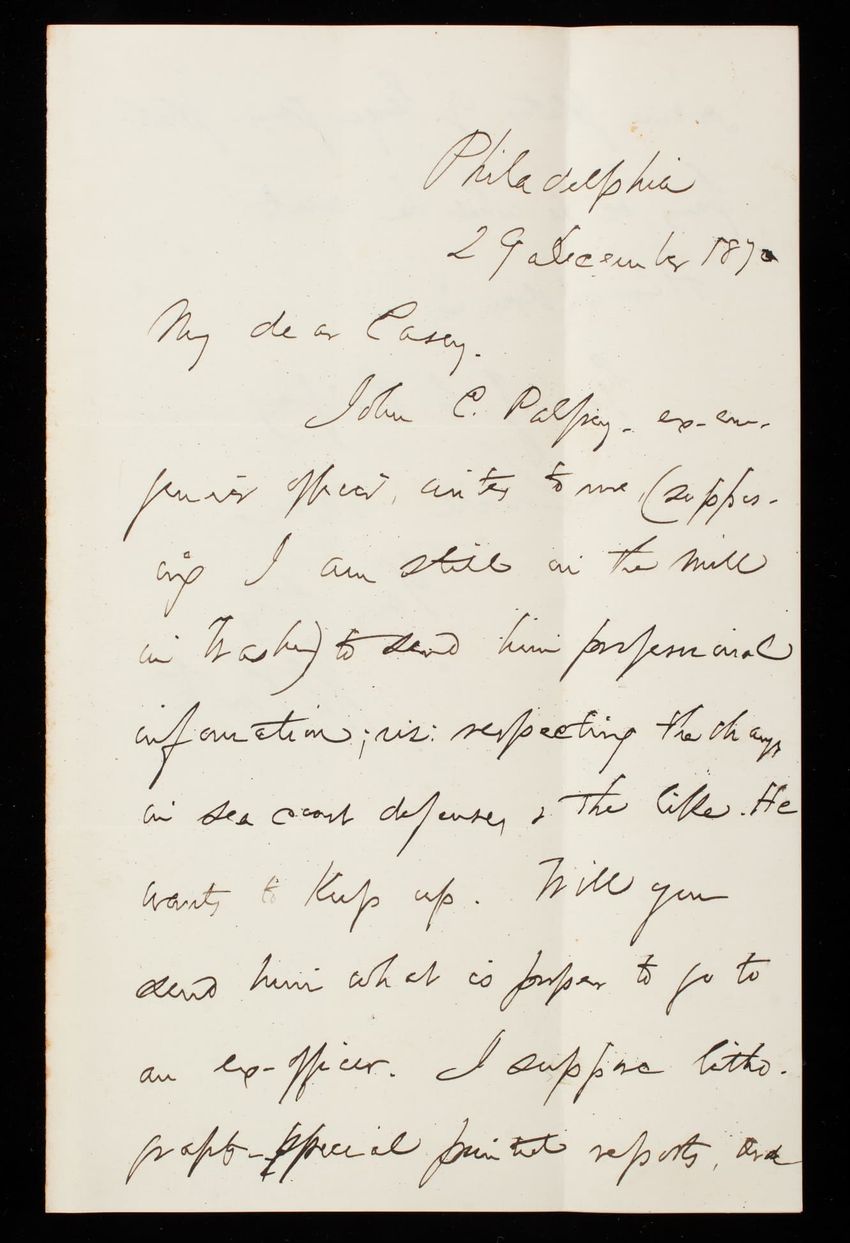 Philadelphia
29 December 1870
My dear Casey.
John C. Palfrey - ex-en-
gineer officer, writes to me, (suppos-
ing I am still in the mill
in Washn) to send him professional
information; viz: respecting the change
in sea coast defenses, & the like. He
wants to keep up. Will you
send him what is proper to go to
an ex-officer. I suppose litho-
graphs - special printed reports, and